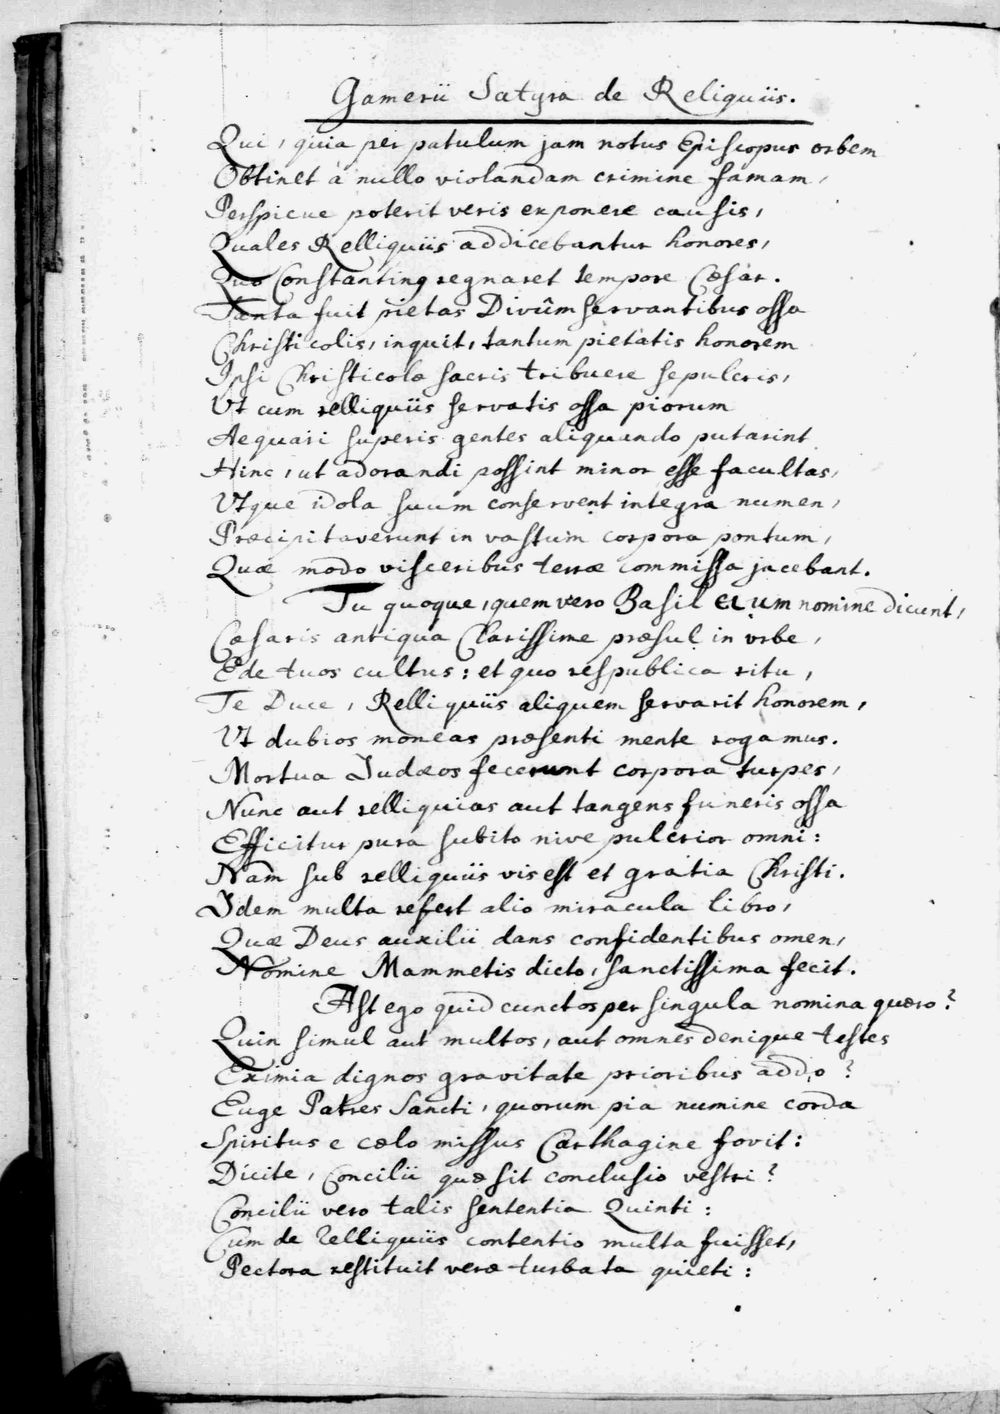 Gamerii Satyra de Reliquiis.
Qui, quia per patulum jam notus Episcopus orbem
Obtinet à nullo violandam crimine famam,
Perspicue poterit veris exponere causis,
Quales Relliquiis addicebantur honores,
Quo Constantinꝰ regnaret tempore Cæsar.
Tanta fuit pietas Divûm servantibus ossa
Christicolis, inquit, tantum pietatis honorem
Ipsi Christicolæ sacris tribuere sepulcris,
Ut cum relliquiis servatis ossa piorum
Aequari superis gentes aliquando putarint
Hinc, ut adorandi possint minor esse facultas,
Utque idola suum conservent integra numen,
Præcipitaverunt in vastum corpora pontum,
Quæ modo visceribus terræ commissa jacebant.
Tu quoque, quem vero Basileium nomine dicunt,
Cæsaris antiqua Clarissime præsul in urbe,
Ede tuos cultus: et quo respublica ritu,
Te Duce, Relliquiis aliquem servarit honorem,
Ut dubios moneas præsenti mente rogamus.
Mortua Judæos fecerunt corpora turpes,
Nunc aut relliquias aut tangens funeris ossa
Efficitur pura subito nive pulcrior omni:
Nam sub relliquiis vis est et gratia Christi.
Idem multa refert alio miracula libro,
Quæ Deus auxilii dans confidentibus omen,
Nomine Mammetis dicto, sanctissima fecit.
Ast ego quid cunctos per singula nomina quæro?
Quin simul aut multos, aut omnes denique testes
Eximia dignos gravitate prioribus addo?
Euge Patres Sancti, quorum pia numine corda
Spiritus e cælo missus Carthagine fovit:
Dicite, Concilii quæ sit conclusio vestri?
Concilii vero talis sententia Quinti:
Cum de relliquiis contentio multa fuisset,
Pectora restituit veræ turbata quieti: